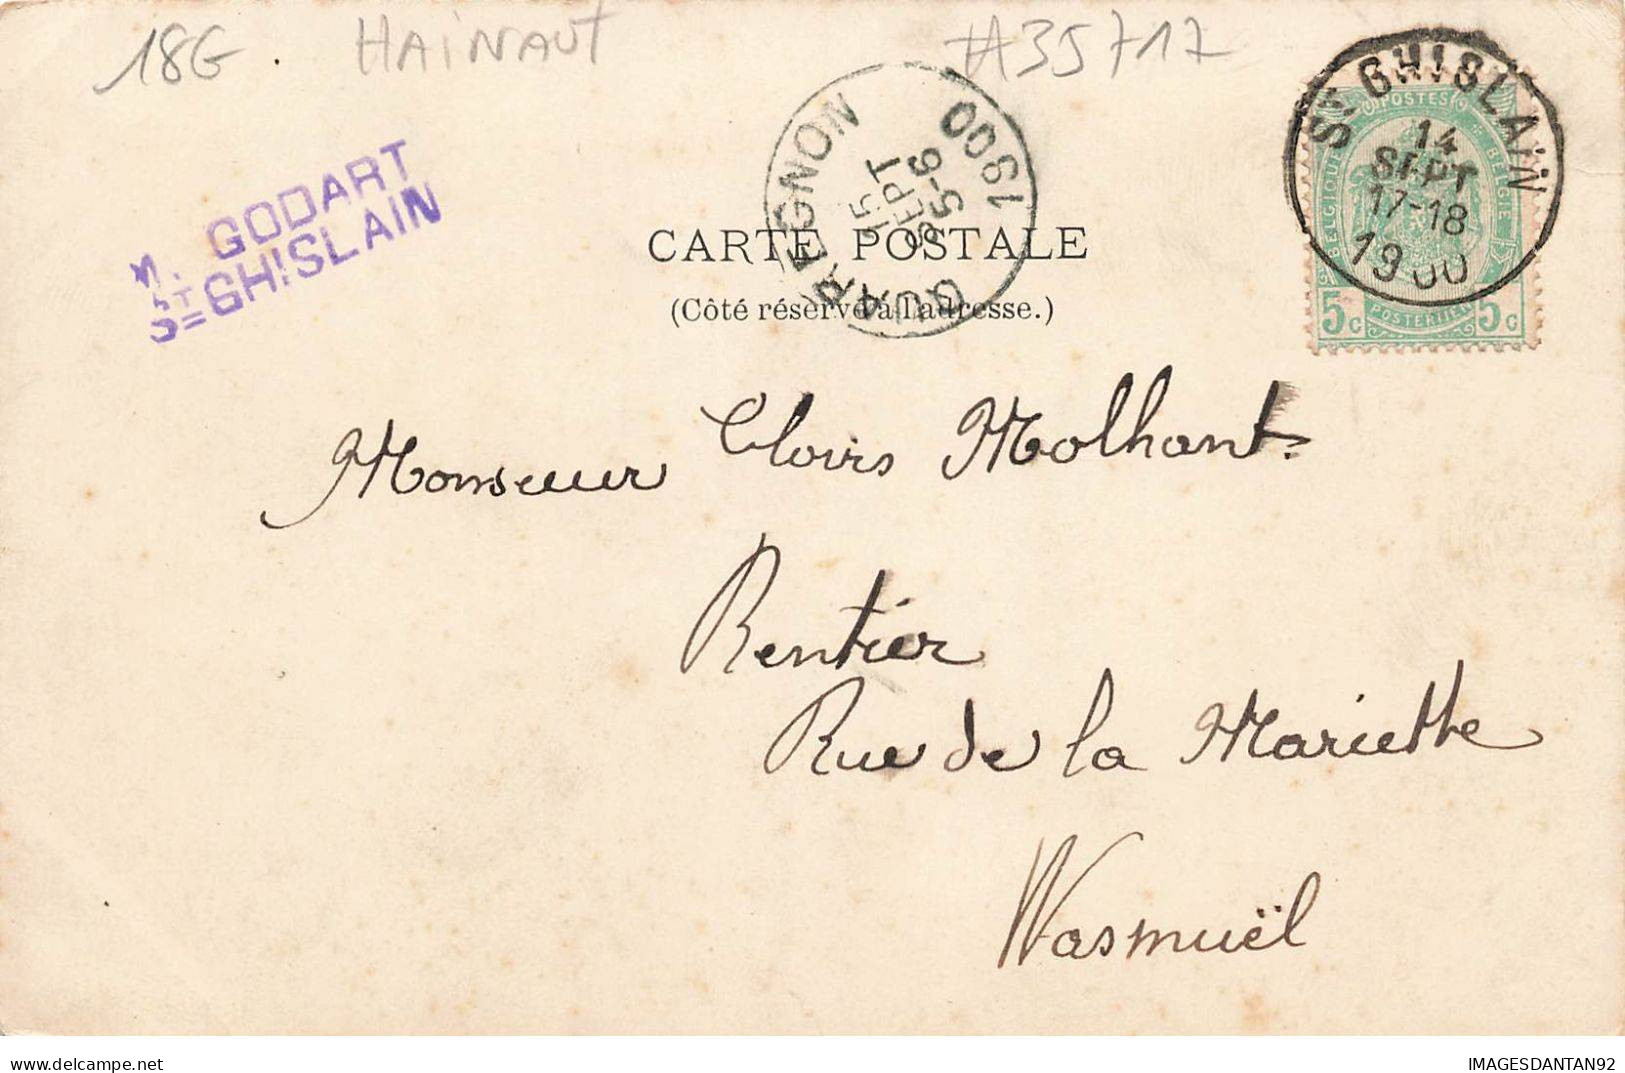 18G. HAINAUT #35717
M. GODART
ST GHISLAIN
QUAREGNON 1900
15
SEPT
5-6
ST GHISLAIN
14
SEPT
17-18
1900
POSTES
BELGIQUE BELGIE
5c POSTERIJEN 5c
CARTE POSTALE
(Côté réservé à l'adresse.)
Monsieur Clovis Molhant
Rentier
Rue de la Mariette
Wasmuël
delcampe.net
IMAGESDANTAN92